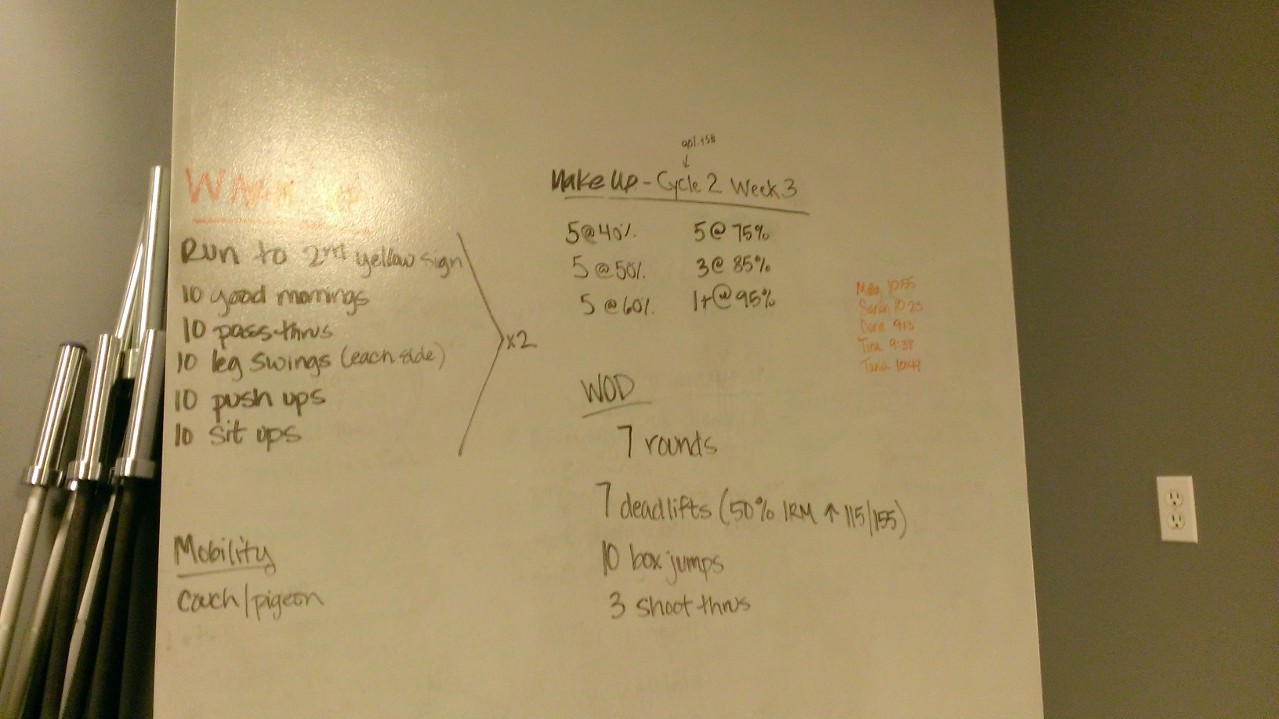 Warm Up
Run to 2nd yellow sign
10 good mornings
10 pass-thrus
10 leg swings (each side)
10 push ups
10 sit ups
x2
Mobility
couch/pigeon
Make Up - Cycle 2 Week 3
5@40% 5@75%
5@50% 3@85%
5@60% 1+@95%
WOD
7 rounds
7 deadlifts (50% 1RM ↑ 115/155)
10 box jumps
3 shoot thrus
10:55
Sarah 10:23
9:13
Tina 9:38
Tana 10:49